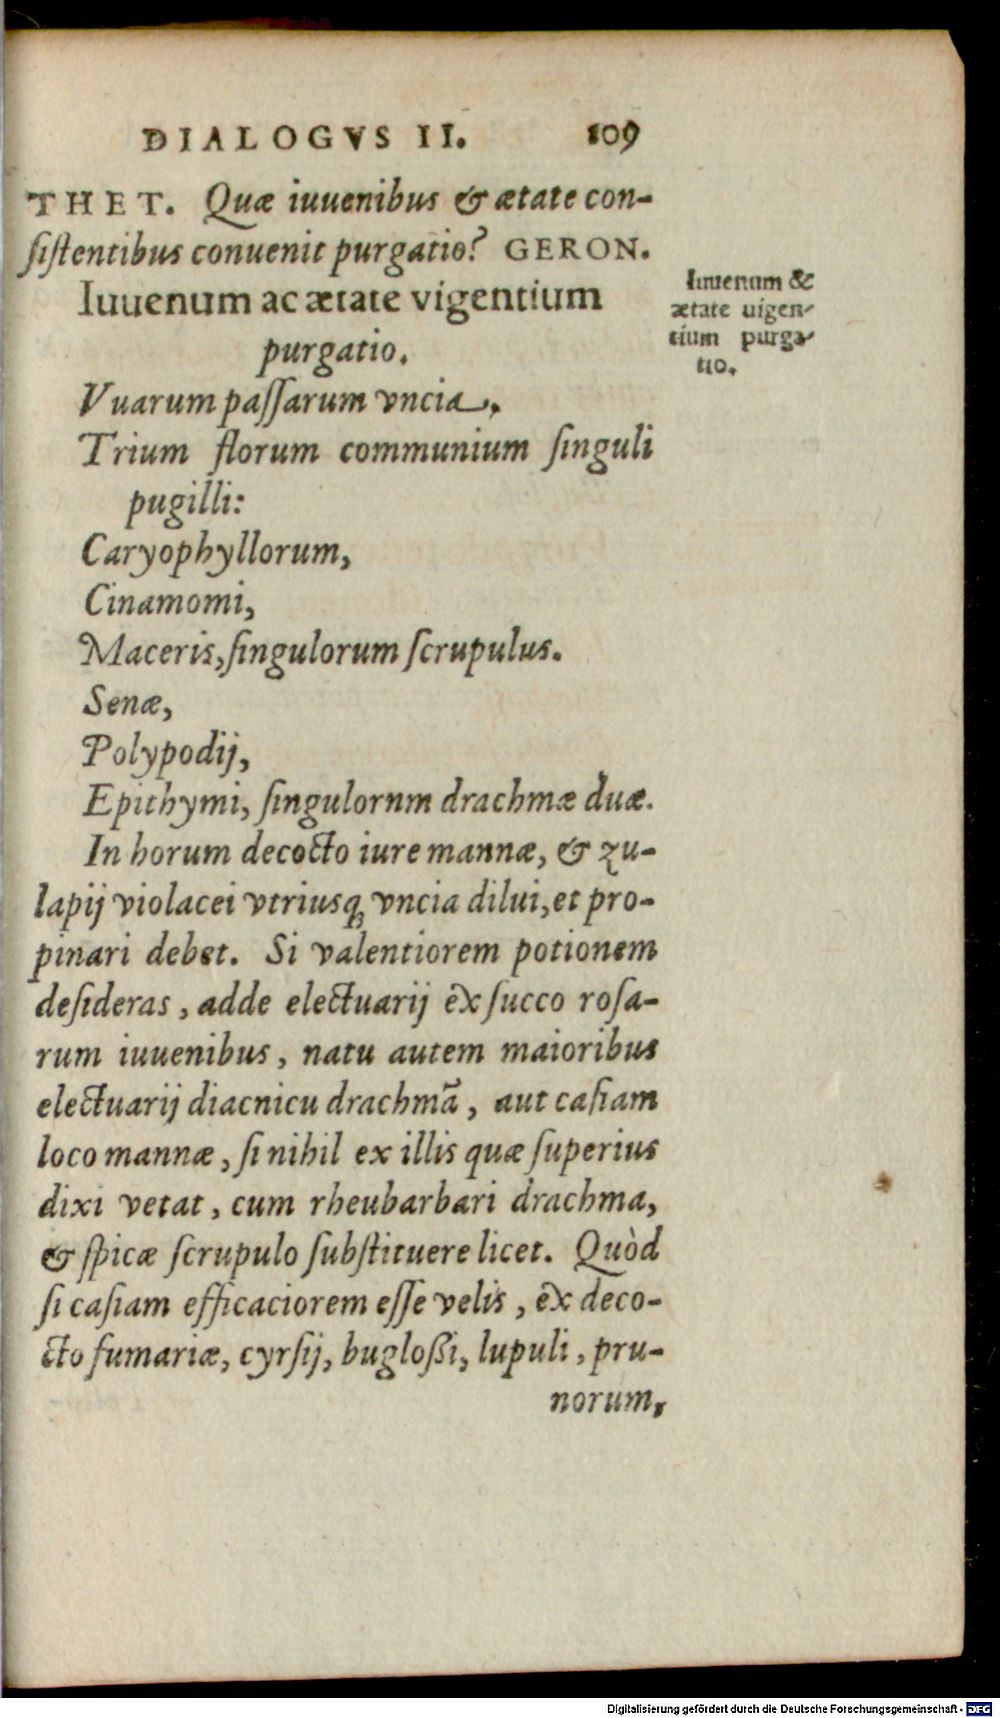 DIALOGVS II. 109
THET. Quæ iuuenibus & ætate con-
ſiſtentibus conuenit purgatio? GERON.
Iuuenum ac ætate vigentium
purgatio.
Iuuenum &
ætate uigen-
tium purga-
tio.
Vuarum paſſarum vncia.
Trium florum communium ſinguli
pugilli:
Caryophyllorum,
Cinamomi,
Maceris, ſingulorum ſcrupulus.
Senæ,
Polypodij,
Epithymi, ſingulornm drachmæ duæ.
In horum decocto iure mannæ, & zu-
lapij violacei vtriusq́; vncia dilui, et pro-
pinari debet. Si valentiorem potionem
deſideras, adde electuarij ex ſucco roſa-
rum iuuenibus, natu autem maioribus
electuarij diacnicu drachmã, aut caſiam
loco mannæ, ſi nihil ex illis quæ ſuperius
dixi vetat, cum rheubarbari drachma,
& ſpicæ ſcrupulo ſubſtituere licet. Quòd
ſi caſiam efficaciorem eſſe velis, ex deco-
cto fumariæ, cyrſij, bugloßi, lupuli, pru-
norum,
Digitalisierung gefördert durch die Deutsche Forschungsgemeinschaft - DFG